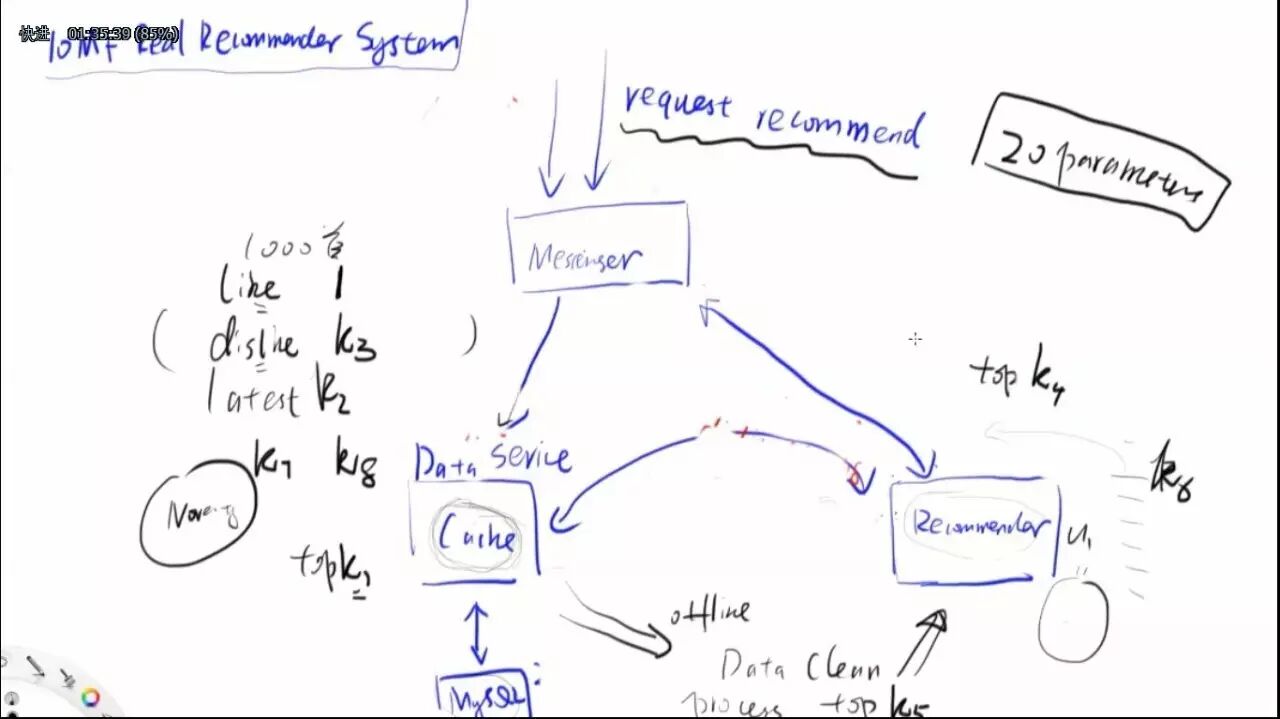 快进 01:35:39 (85%)
Real Recommender System
request recommend
20 parameters
Messenger
1000首
like 1
(dislike k3)
latest k2
k7 k8
top k4
Data Service
k6
Cache
Recommender
u1
top k1
offline
Data Clean
process top k5
MySQL